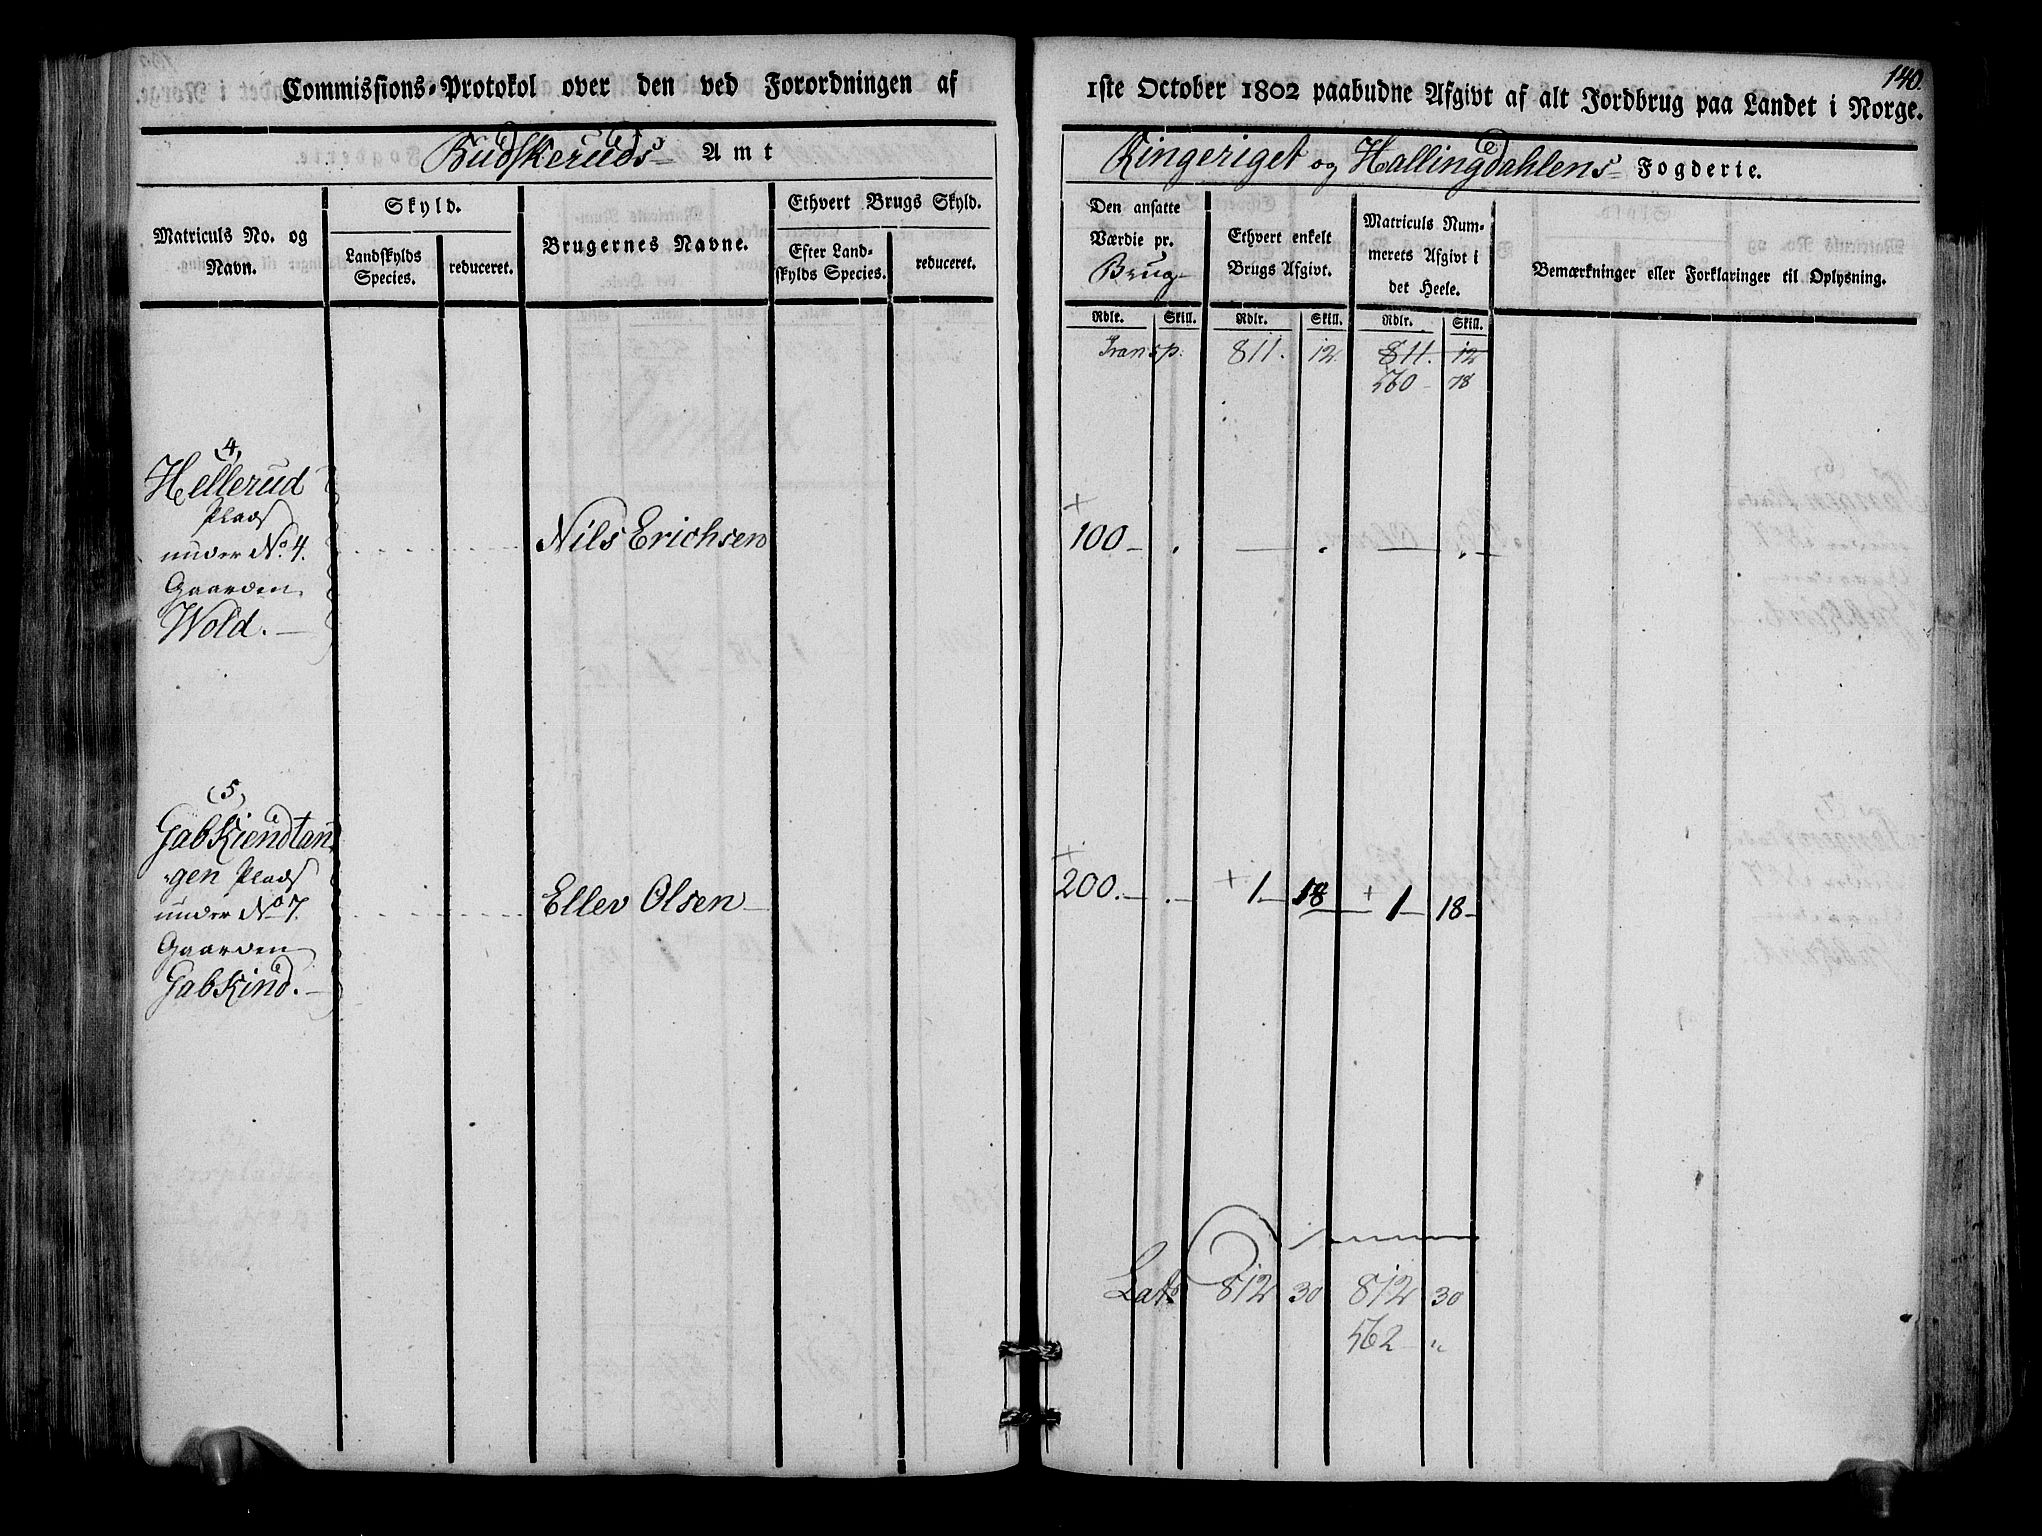 Commissions-Protokol over den ved Forordningen af
1ste October 1802 paabudne Afgivt af alt Jordbrug paa Landet i Norge.
140.
Budskeruds Amt
Ringeriget og Hallingdahlens Fogderie.
Matriculs No. og
Navn.
Skyld.
Landskylds
Species.
reduceret.
Brugernes Navne.
Ethvert Brugs Skyld.
Efter Land-
skylds Species.
reduceret.
Den ansatte
Værdie pr.
Brug
Ethvert enkelt
Brugs Afgivt.
Matriculs Num-
merets Afgivt i
det Heele.
Bemærkninger eller Forklaringer til Oplysning.
Rdlr. Skill. Rdlr. Skill. Rdlr. Skill.
Transp: 811. 12 811. 12
560 - 78
4)
Hellerud
Plads
under No. 4.
Gaarden
Wold. -
Nils Erichsen
+
100 - . — . — .
(5)
Gabkiendtan-
gen Plads
under No 7.
Gaarden
Gabkind. -
Ellev Olsen
+
200. - . - + 1 - 18 + 1 - 18 -
Lats 812 30 812 30
562 - "